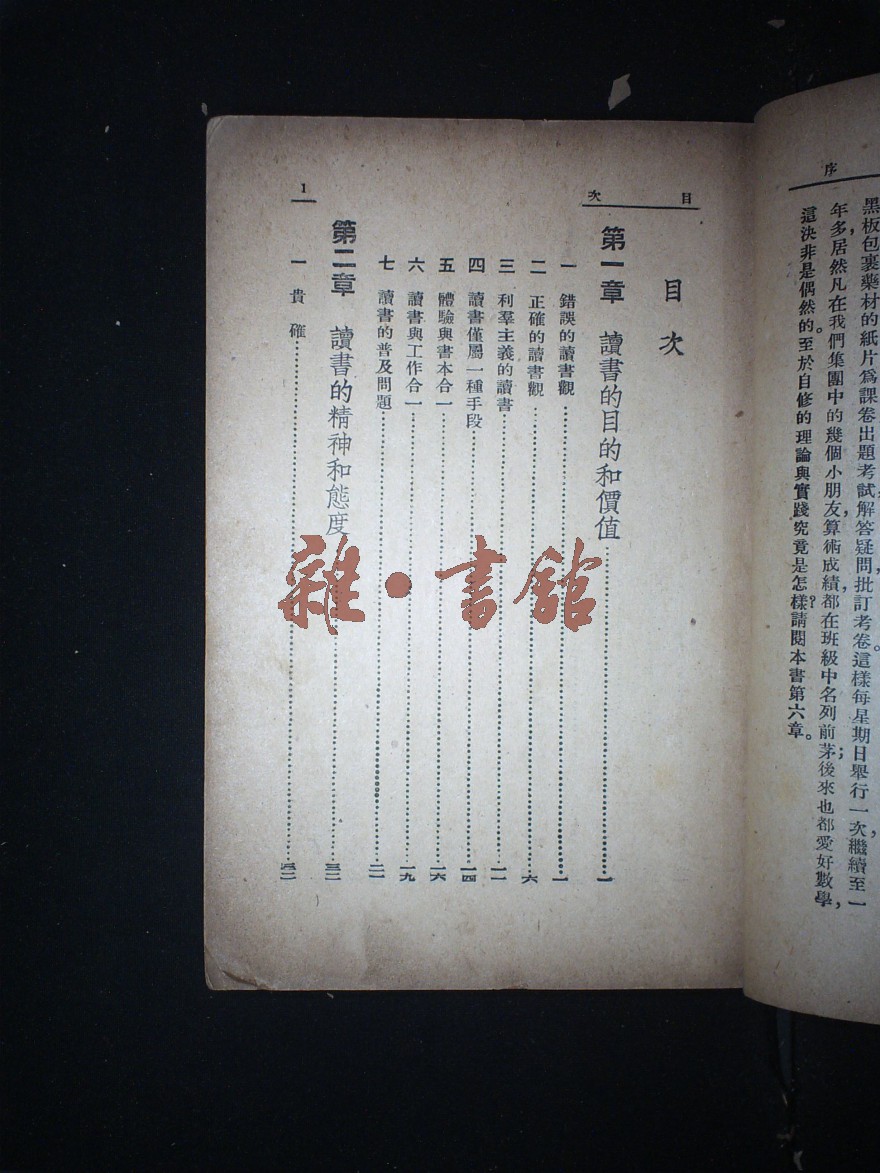 序
黑板包裹藥材的紙片爲課卷出題考試解答疑問批訂考卷。這樣每星期日舉行一次，繼續至一
年多，居然凡在我們集團中的幾個小朋友，算術成績都在班級中名列前茅；後來也都愛好數學，
這決非是偶然的。至於自修的理論與實踐究竟是怎樣？請閱本書第六章。
目次
目次
第一章　讀書的目的和價值……一
一　錯誤的讀書觀……一
二　正確的讀書觀……六
三　利羣主義的讀書……一一
四　讀書僅屬一種手段……一四
五　體驗與書本合一……一六
六　讀書與工作合一……一九
七　讀書的普及問題……二一
第二章　讀書的精神和態度……三二
一　貴確
1
雜·書館